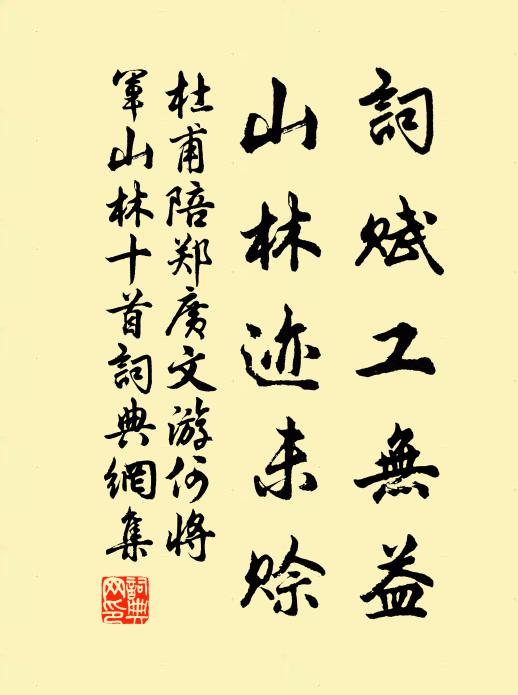 詞赋工無益
山林迹未赊
杜甫陪郑廣文游何將
軍山林十首詞典網集
詞典网印